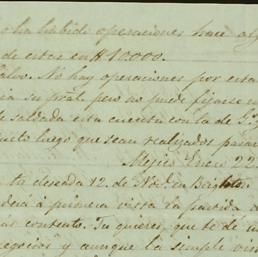 ha habido operaciones hace al
de estas en $10.000.
No hay operaciones por esta
pero no puede fijarse
saldada esta cuenta con la de
luego que sean realizados
Mejico Enero 22
deseada 12 de Nov. en
á primera vista la partida
contento. Tu quieres que te dé
negocios y aunque la simple